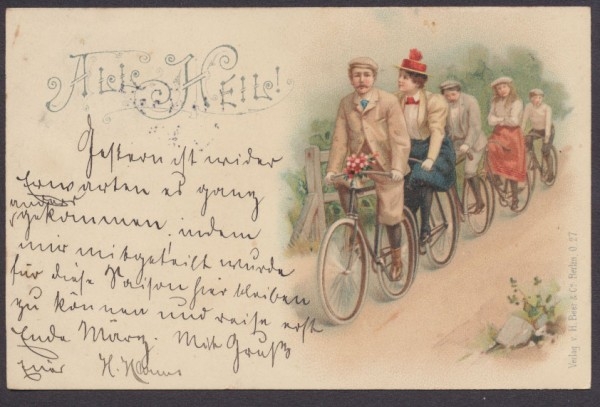 All Heil!
Gestern ist wider
Erwarten es ganz
anders
gekommen, indem
mir mitgeteilt wurde
für diese Saison hier bleiben
zu können und reise erst
Ende März. Mit Gruß
Euer H.
Verlag v. H. Beier & Co. Berlin, O. 27